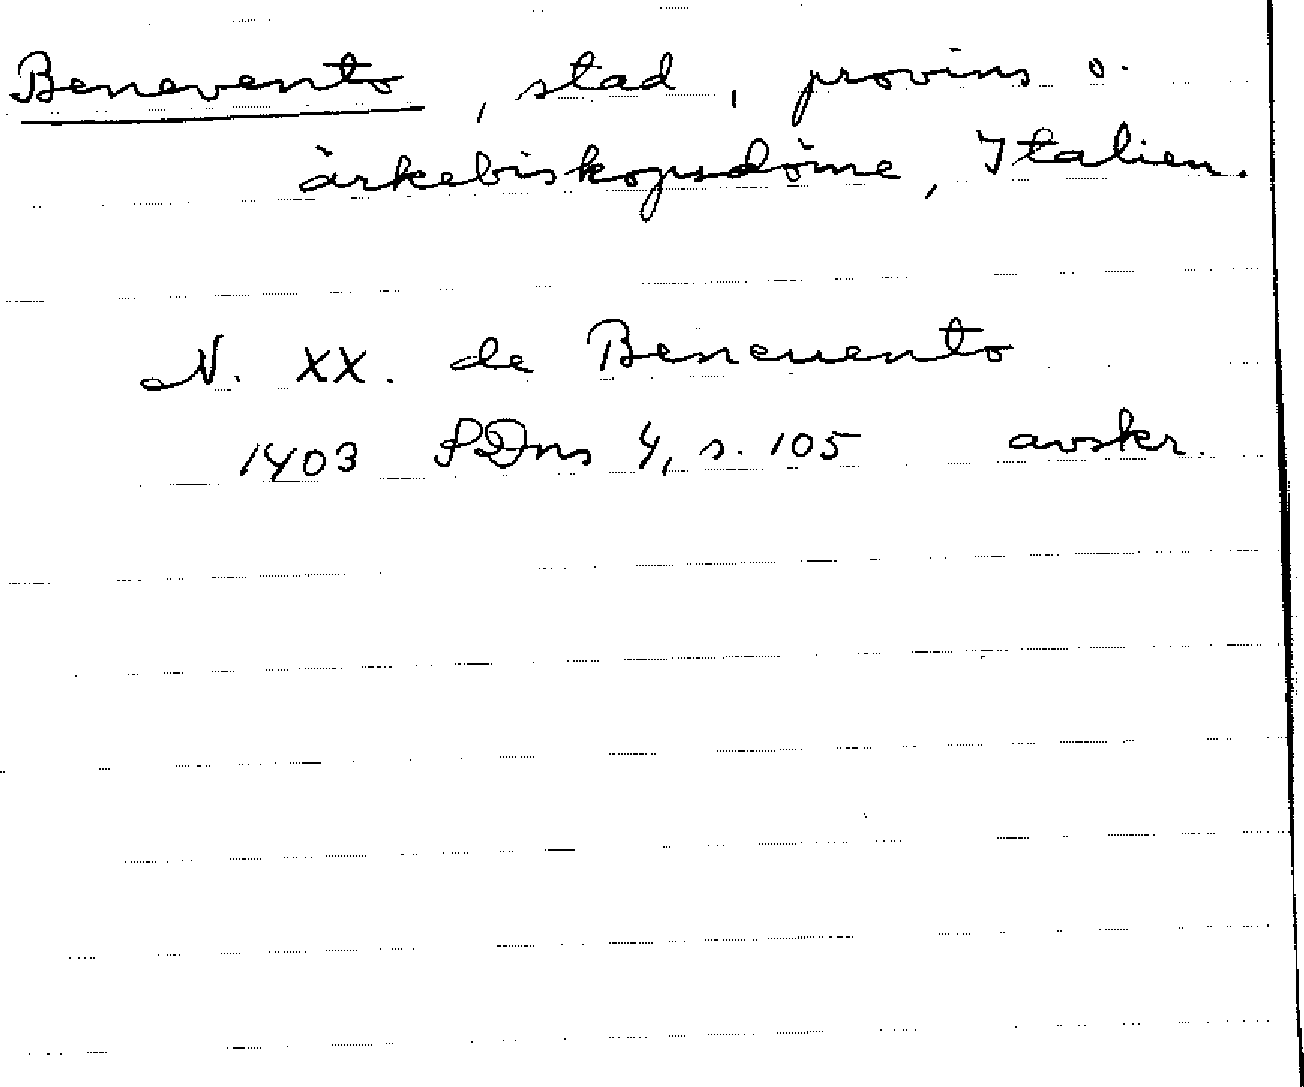 Benevento, stad, provins o.
ärkebiskopsdöme, Italien.
N. XX. de Beneuento
1403 SDns 4, s. 105 avskr.